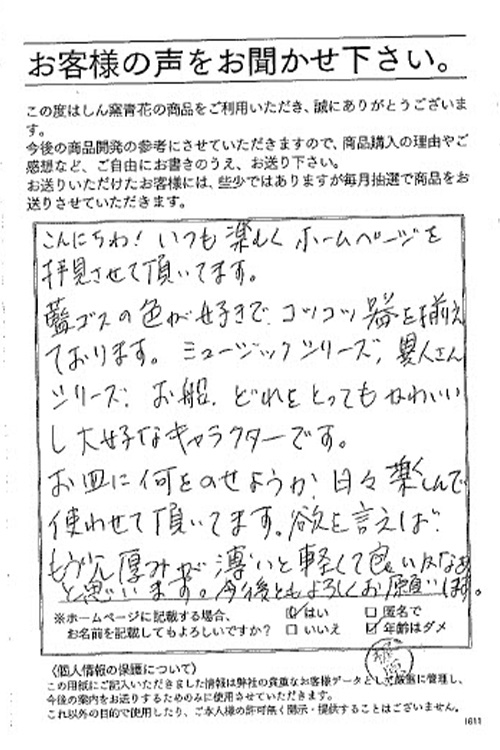 お客様の声をお聞かせ下さい。
この度はしん窯青花の商品をご利用いただき、誠にありがとうございま
す。
今後の商品開発の参考にさせていただきますので、商品購入の理由やご
感想など、ご自由にお書きのうえ、お送り下さい。
お送りいただけたお客様には、些少ではありますが毎月抽選で商品をお
送りさせていただきます。
こんにちわ！いつも楽しくホームページを
拝見させて頂いてます。
藍ゴスの色が好きで、コツコツ器を揃え
ております。ミュージックシリーズ、異人さん
シリーズ、お船、どれをとってもかわいい
し大好なキャラクターです。
お皿に何をのせようか、日々楽しんで
使わせて頂いてます。欲を言えば、
もう少し厚みが薄いと軽くて良いかなあ
と思います。今後ともよろしくお願いします。
※ホームページに記載する場合、 ☑はい □匿名で
お名前を記載してもよろしいですか？ □いいえ ☑年齢はダメ
〈個人情報の保護について〉
この用紙にご記入いただきました情報は弊社の貴重なお客様データとして厳重に管理し、
今後の案内をお送りするためのみに使用させていただきます。
これ以外の目的で使用したり、ご本人様の許可無く開示・提供することはございません。
1611